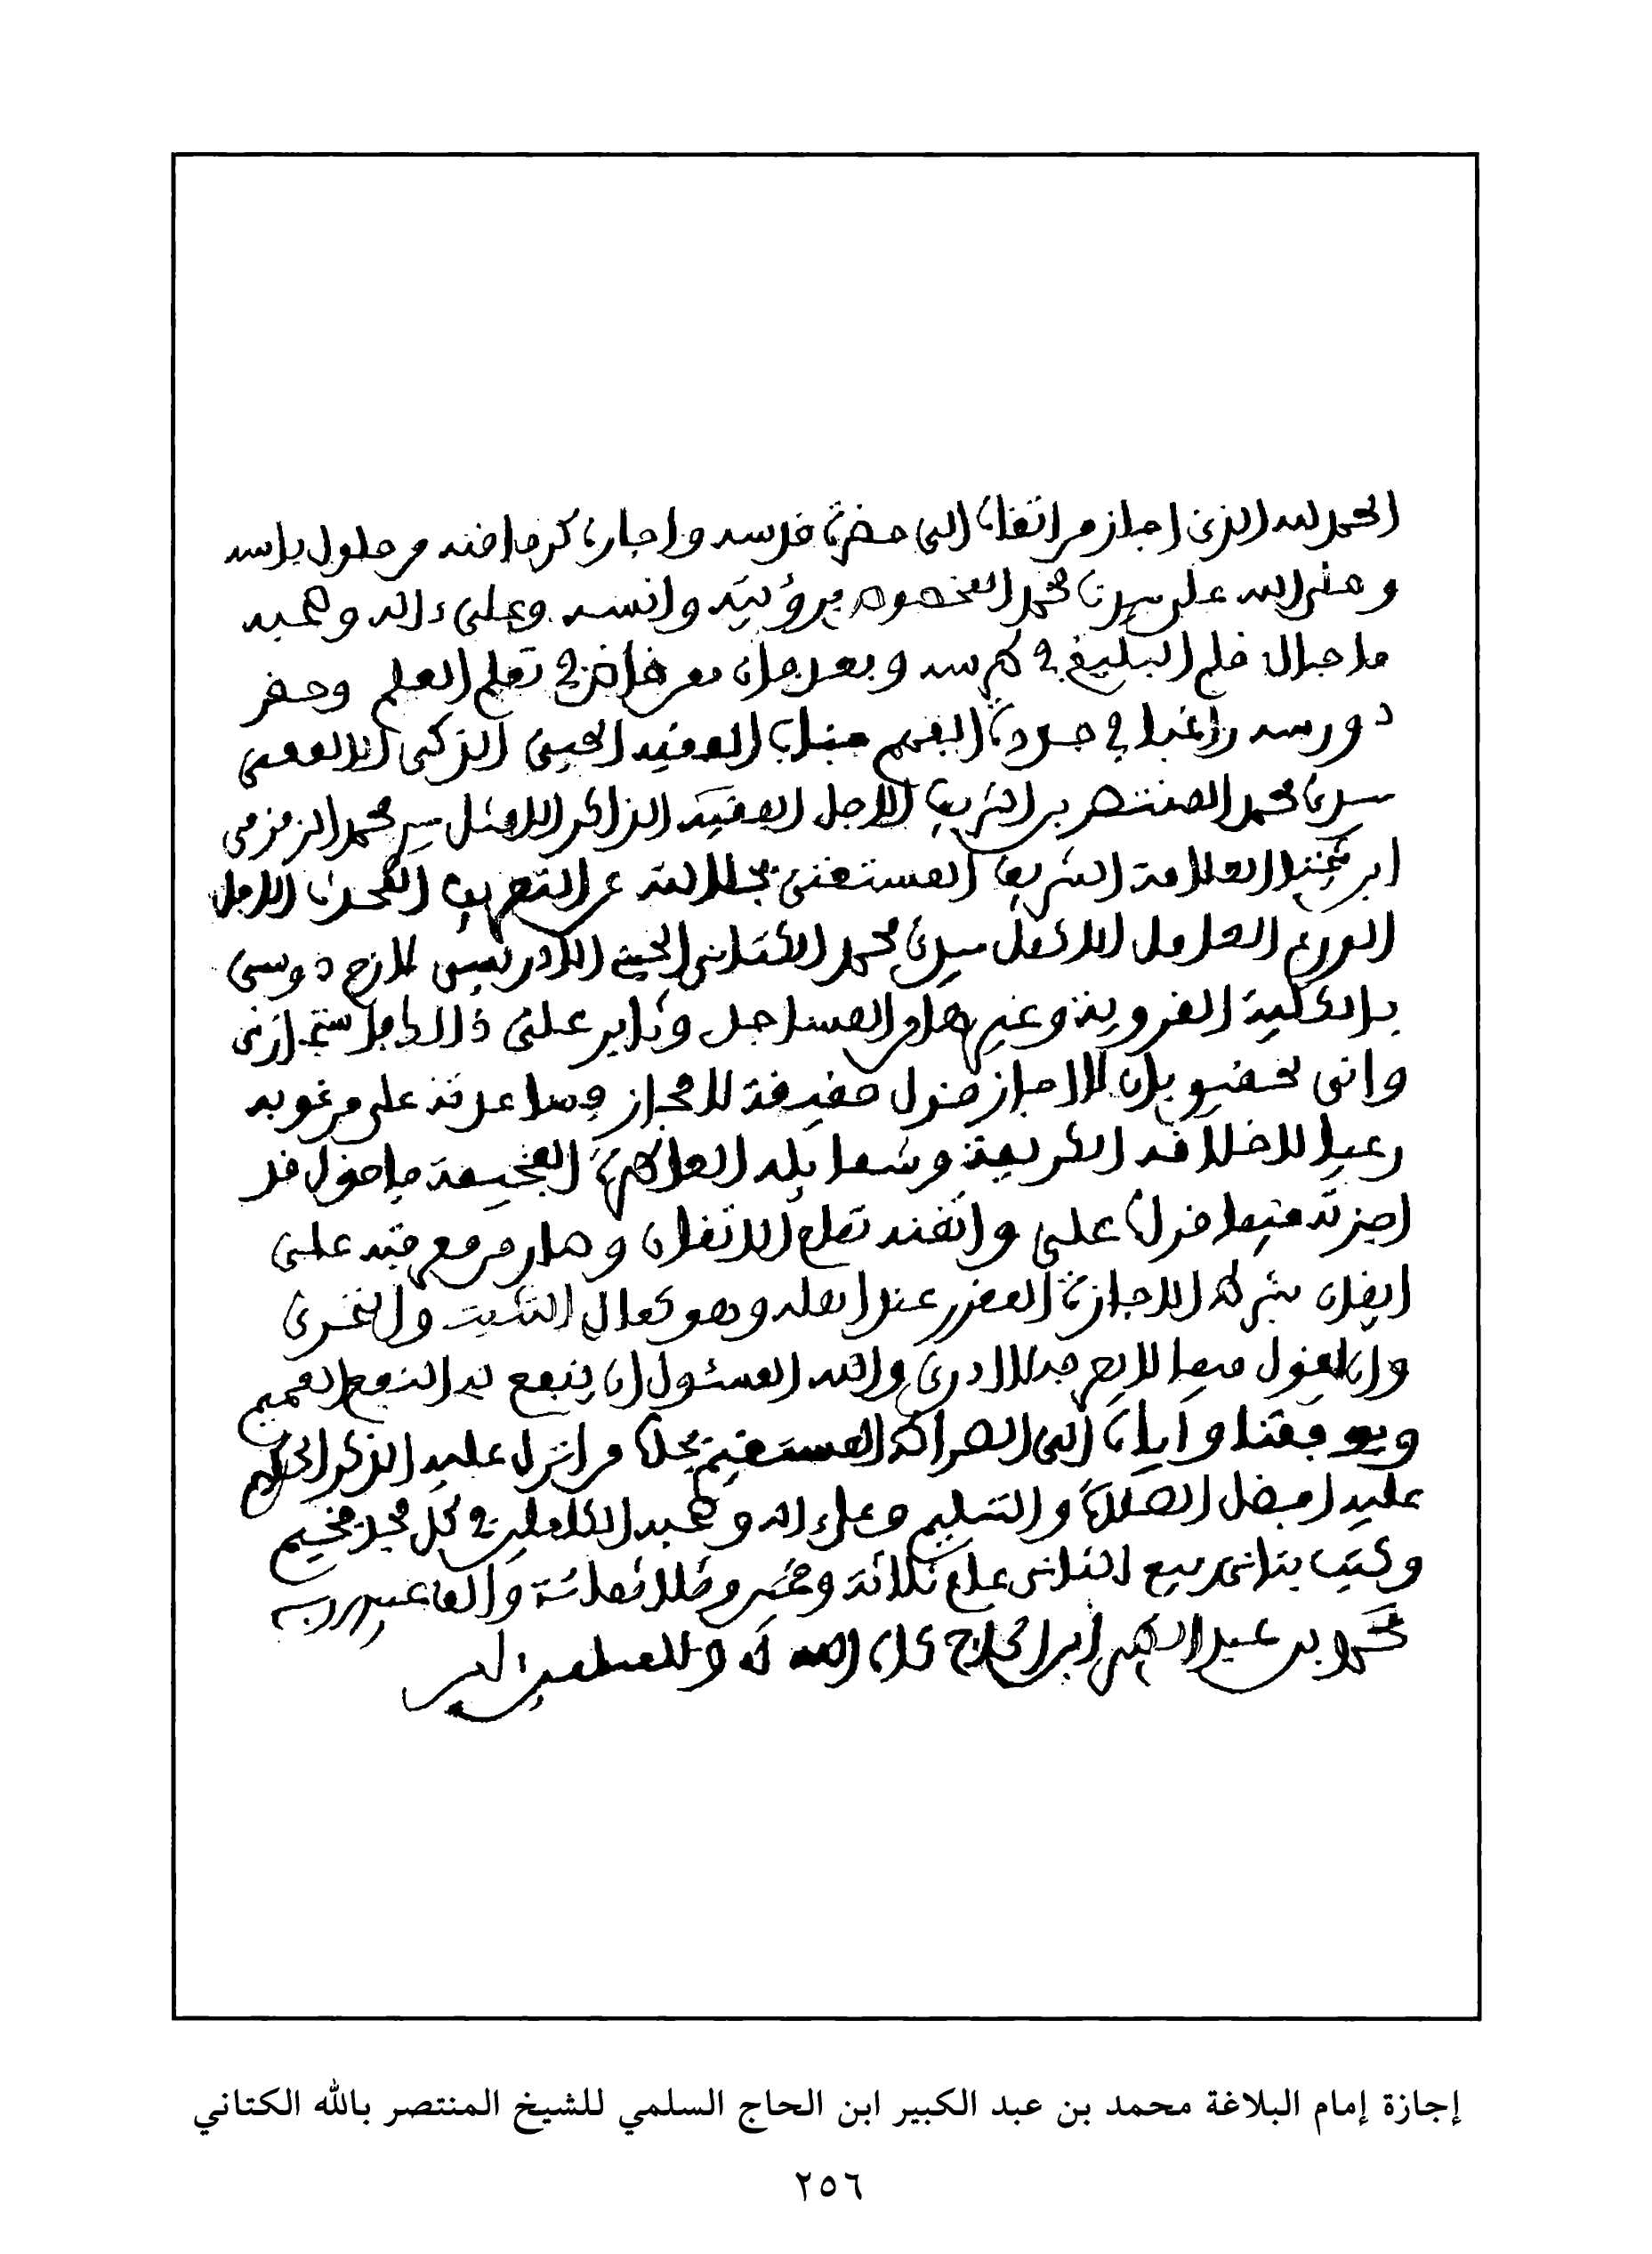 الحمد لله الذي أجاز من اتقاه إلى حضرة قدسه وأجاره كرما منه من حلول بأسه
وصلى الله على سيدنا محمد المخصوص برؤيته وأنسه وعلى ءاله وصحبه
ما جال قلم البليغ في طرسه وبعد فإن ممن خاض في تعلم العلم وحضر
دروسه راغبا في جودة الفهم جناب الفقيه الحيي الزكي الالمعي
سيدنا محمد المنتصر بن الشريف الاجل الفقيه الذاكر الامثل سيدي محمد الزمزمي
ابن شيخنا العلامة الشريف المستغنى بجلالته عن التعريف المحدث الاجل
الورع العامل الاكمل سيدنا محمد الكتاني الحسني الادريسي لازم دروسي
بالكلية القروية وغيرها من المساجد وثابر على ذالك فاستجازني
وإني لحقيق بأن لا أجاز فنزل حقيقة للمجاز ومساعدته على مرغوبه
رعيا لاخلاقه الكريمة وشمايله الطاهرة الفخيمة فاقول قد
اجزته فيما قرأه علي وأتقنه تمام الاتقان وصار من معرفته على
ايقان بشرط الاجازة المقرر عند اهله وهو كمال التثبت والتحري
وان يقول فيما لا يعرفه لا ادري والله المسئول ان ينفع به النفع العميم
ويوفقنا واياه الى الصراط المستقيم بجاه من انزل عليه الذكر الحكيم
عليه افضل الصلاة والتسليم وعلى ءاله وصحبه الكاملين في كل مجد فخيم
وكتب بثاني ربيع الثاني عام ثلاثة وخمسين وثلاثمائة والف عبيد ربه
محمد بن عبد الكبير ابن الحاج كان الله له وللمسلمين ءامين
إجازة إمام البلاغة محمد بن عبد الكبير ابن الحاج السلمي للشيخ المنتصر بالله الكتاني
٢٥٦